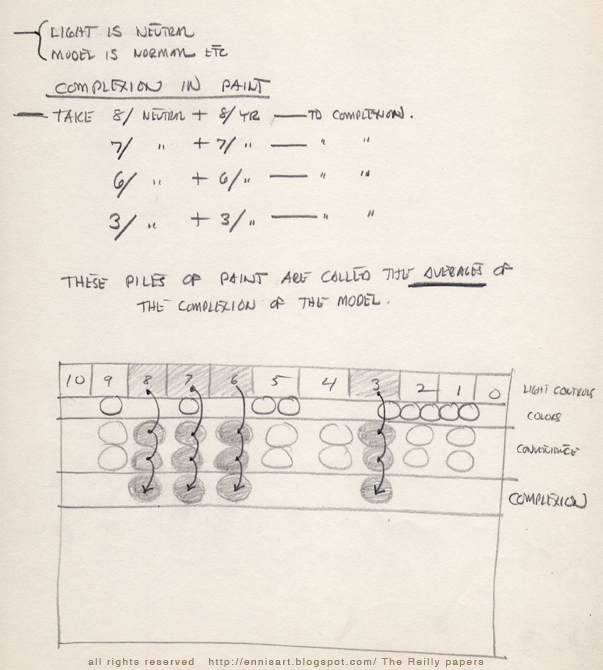 LIGHT IS NEUTRAL
MODEL IS NORMAL ETC
COMPLEXION IN PAINT
— TAKE 8/ NEUTRAL + 8/YR — TO COMPLEXION.
7/ " + 7/ " — " "
6/ " + 6/ " — " "
3/ " + 3/ " — " "
THESE PILES OF PAINT ARE CALLED THE AVERAGES OF
THE COMPLEXION OF THE MODEL.
10 9 8 7 6 5 4 3 2 1 0 LIGHT CONTROLS
COLORS
CONVENIENCE
COMPLEXION
all rights reserved http://ennisart.blogspot.com/ The Reilly papers